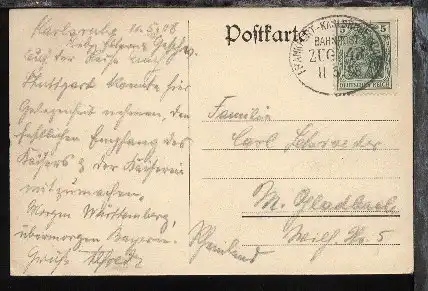 Karlsruhe 10.5.08
Liebe Eltern & Geschw.
Auf der Reise nach
Stuttgart konnte ich
Gelegenheit nehmen, den
festlichen Empfang des
Kaisers & der Kaiserin
mitzumachen.
Morgen Württemberg,
übermorgen Bayern.
Grüße Alfred
Postkarte
BAHNPOST
ZUG
5
5
DEUTSCHES REICH
Familie
Carl Schroeder
M. Gladbach
Rheinland
Wilh. Str. 5